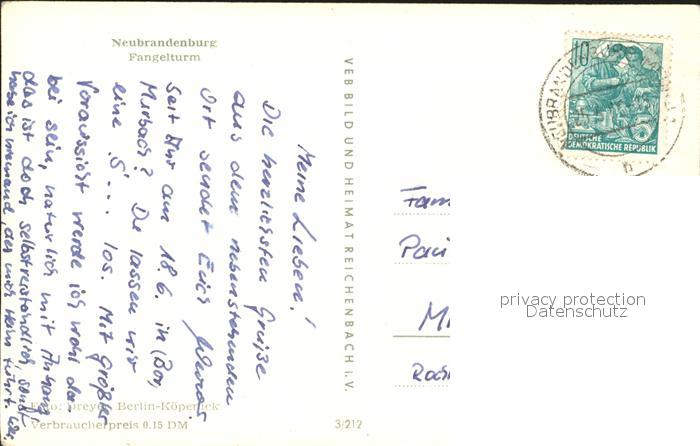 Neubrandenburg
Fangelturm
Meine Lieben!
Die herzlichsten Grüße
aus dem nebenstehenden
Ort sendet Euch
Seid Ihr am 18.6. in
? Da lassen wir
eine S... los. Mit größter
Voraussicht werde ich wohl da-
bei sein, natürlich mit Anhang
das ist doch selbstverständlich, sonst
habe ich niemand, der mich heim führt.
Foto: Dreyer, Berlin-Köpenick
Verbraucherpreis 0.15 DM
3/212
VEB BILD UND HEIMAT REICHENBACH i. V.
10
DEUTSCHE
DEMOKRATISCHE REPUBLIK
Fam
privacy protection
Datenschutz